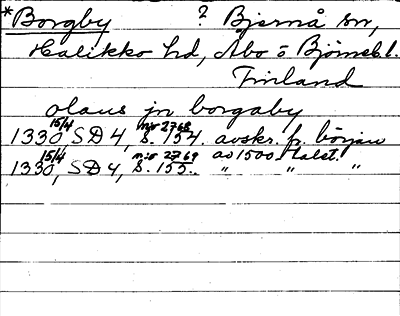 *Borgby ? Bjernå sn,
Halikko hd, Åbo o Björneb. l.
Finland
olaus jn borgaby
1330 15/4, SD 4, nr 2768 s. 154. avskr. fr. början
av 1500-talet.
1330 15/4, SD 4, nr 2769 s. 155. " " "